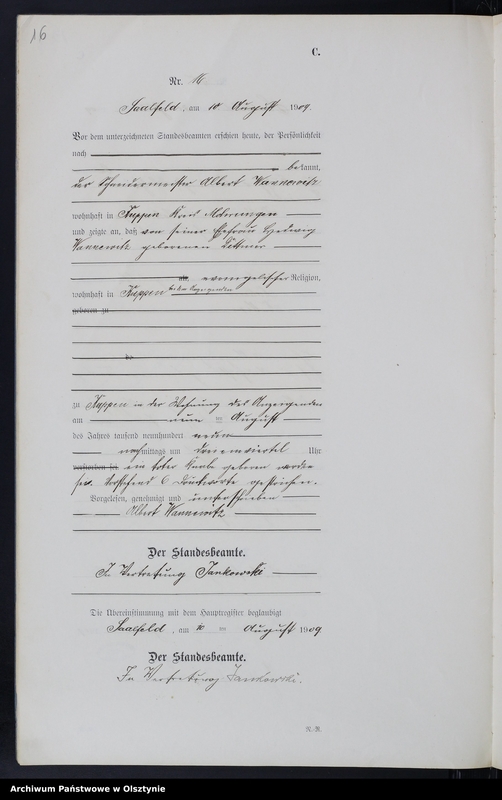 16
C.
Nr. 16
Saalfeld, am 10 August 1909.
Vor dem unterzeichneten Standesbeamten erschien heute, der Persönlichkeit
nach
bekannt,
der Albert Wannowitz
wohnhaft in Kuppen Kreis Mohrungen
und zeigte an, daß von seiner Ehefrau Hedwig
Wannowitz geborenen
evangelischer Religion,
wohnhaft in Kuppen bei dem Anzeigenden
geboren zu
zu Kuppen in der Wohnung des Anzeigenden
am neun ten August
des Jahres tausend neunhundert neun
nachmittags um dreieinviertel Uhr
verstorben sei ein toter Knabe geboren worden
sei. Vorstehend 6 Druckworte gestrichen.
Vorgelesen, genehmigt und unterschrieben
Albert Wannowitz
Der Standesbeamte.
In Vertretung Jankowski
Die Übereinstimmung mit dem Hauptregister beglaubigt
Saalfeld, am 10 ten August 1909
Der Standesbeamte.
In Vertretung Jankowski.
Archiwum Państwowe w Olsztynie